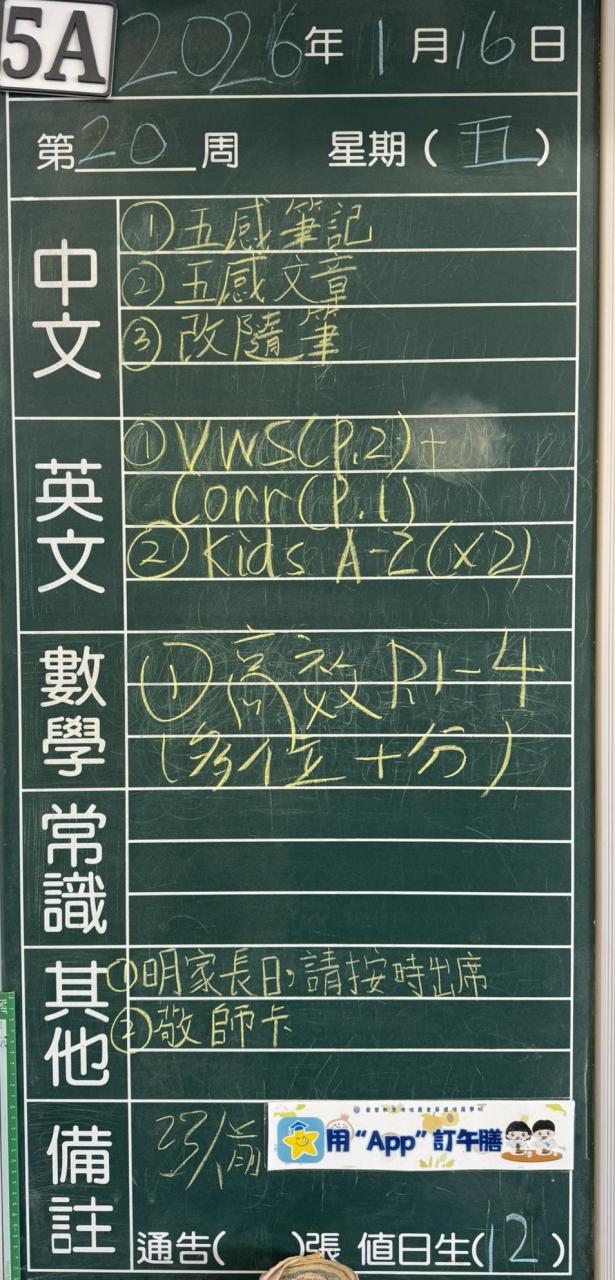 5A
2026年1月16日
第20周 星期(五)
中文
①五感筆記
②五感文章
③改隨筆
英文
①VWS(P.2)+
Corr(P.1)
②Kids A-Z(x2)
數學
①高效P.1-4
(多位+分)
常識
其他
①明家長日,請按時出席
②敬師卡
備註
用“App”訂午膳
通告( )張 值日生(12)